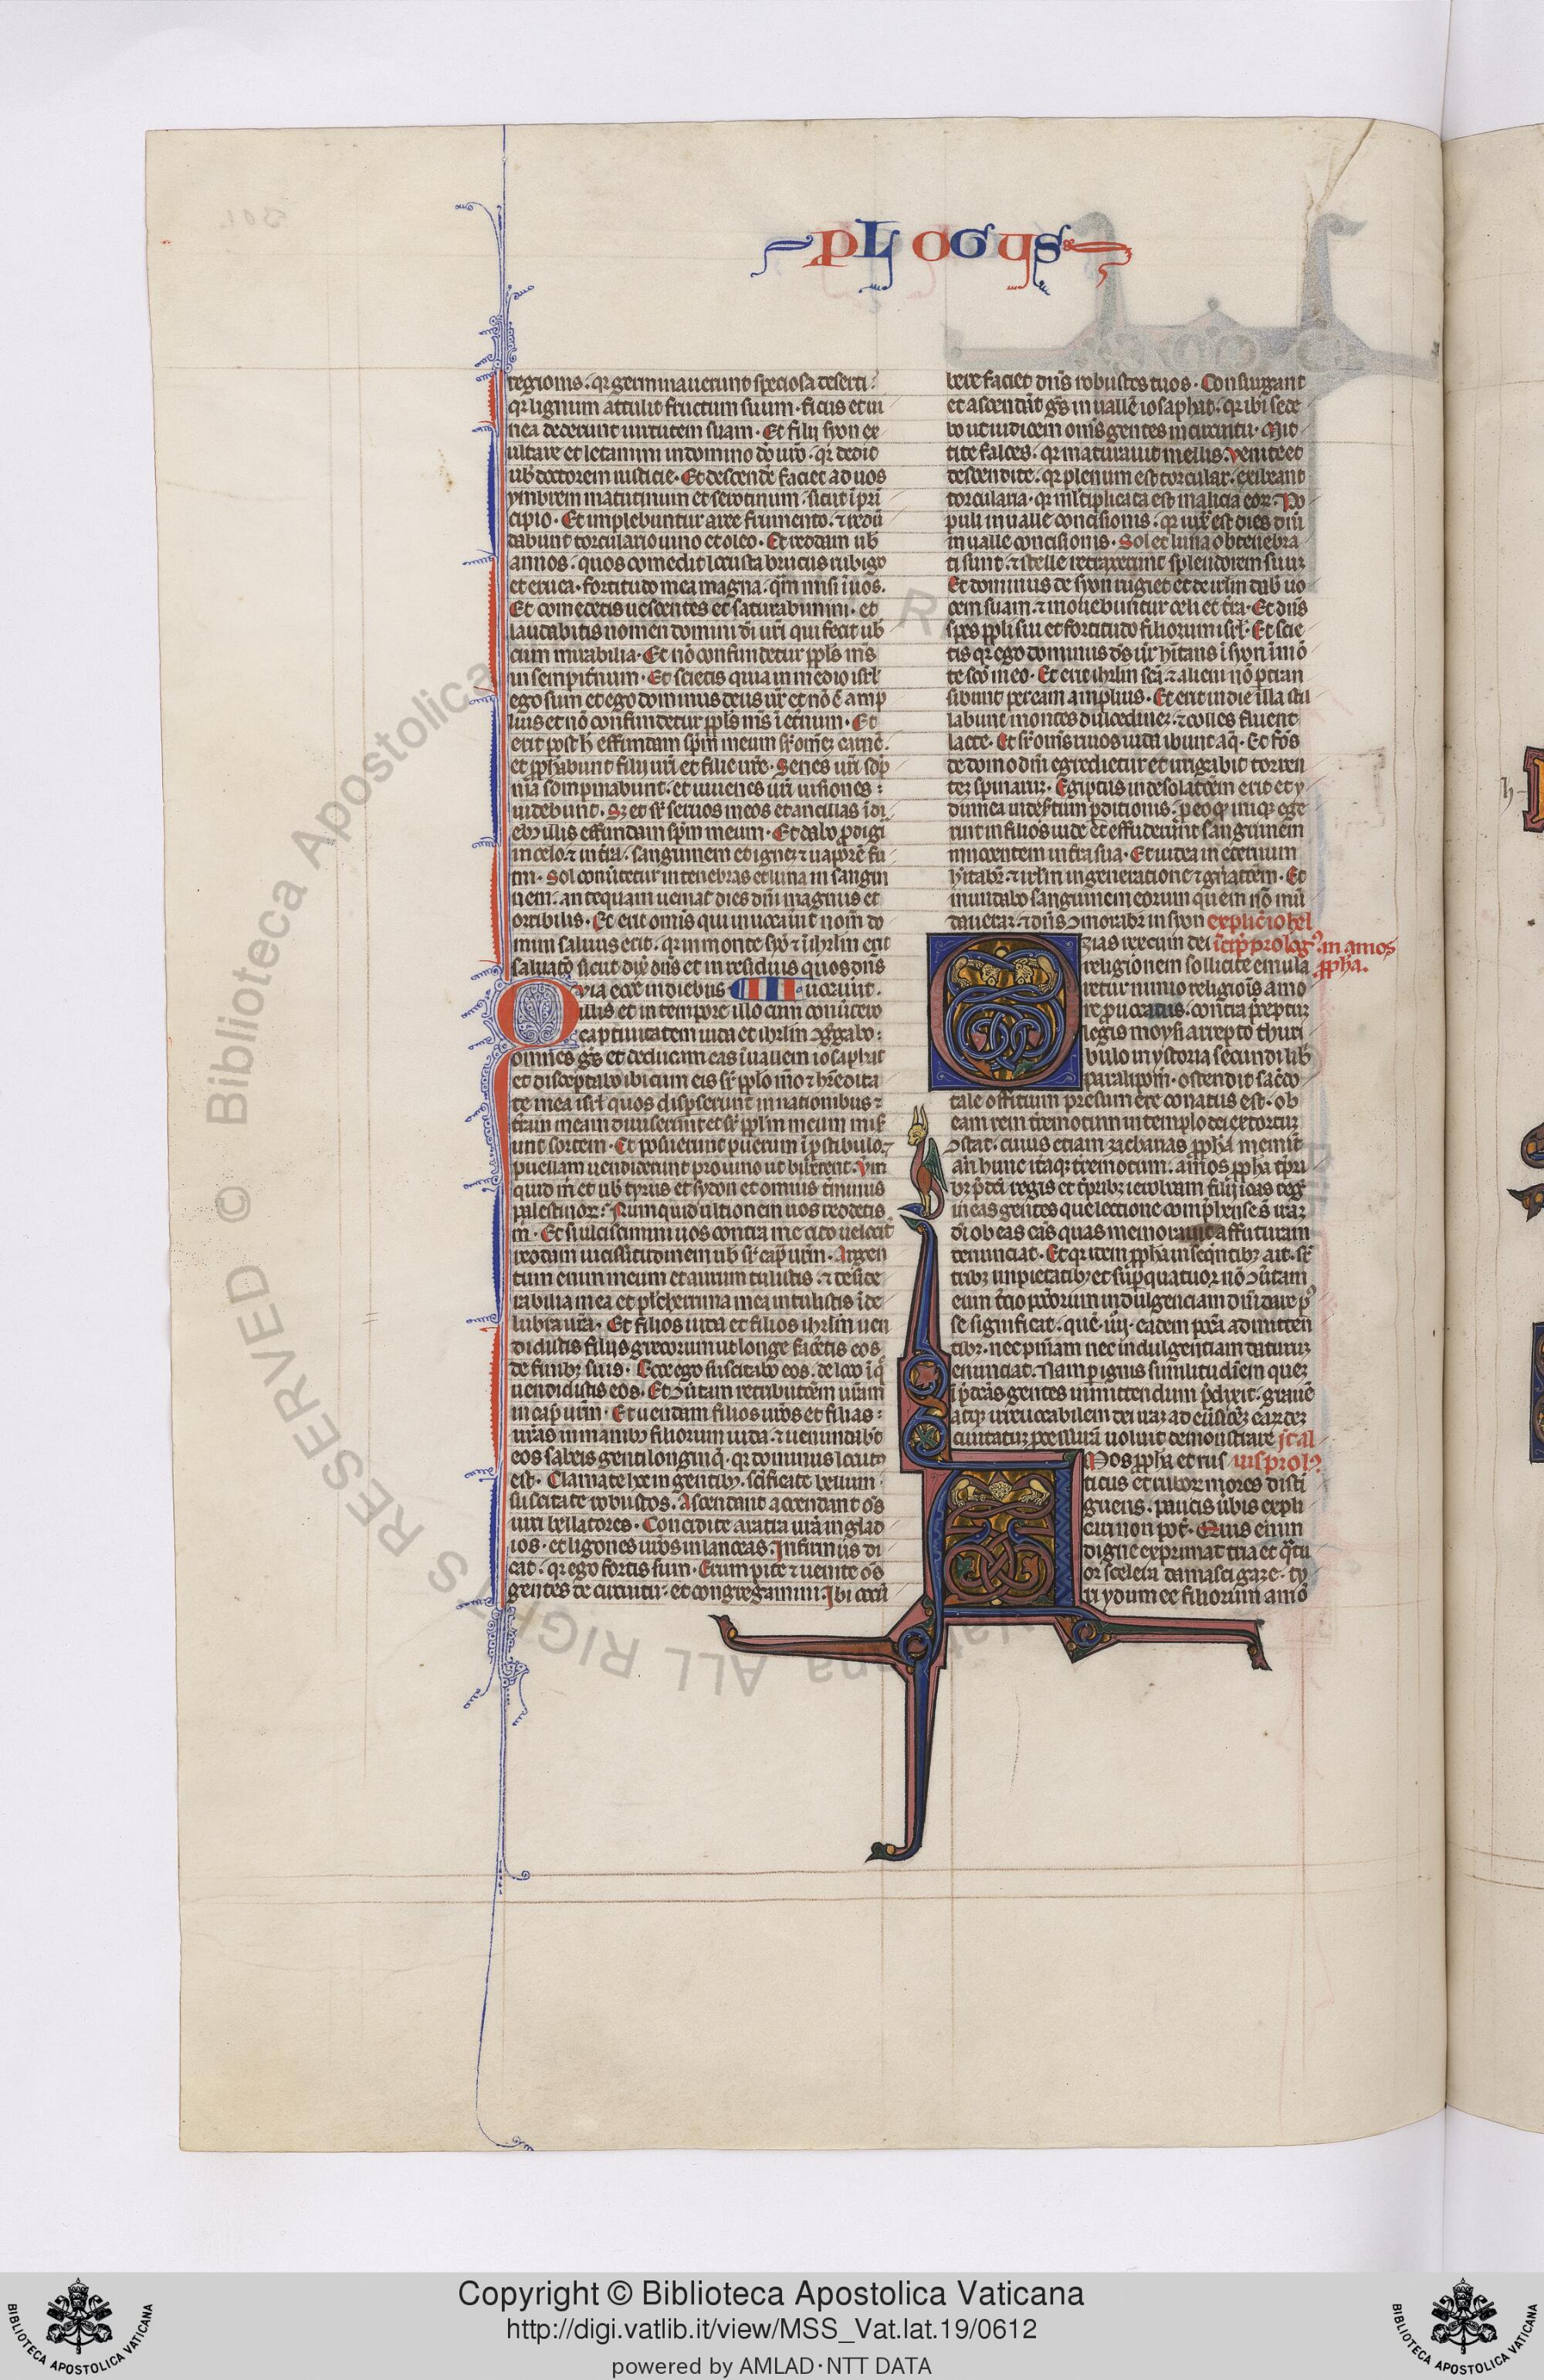 PLOGUS
regionis. qr germinauerunt speciosa deserti.
qr lignum attulit fructum suum. ficus et ui
nea dederunt uirtutem suam. Et filij syon ex
ultate et letamini in domino do uro. qr dedit
ub doctorem iusticie. Et descende faciet ad uos
ymbrem matutinum et serotinum. sicut i pri
cipio. Et implebuntur aree frumento. 7 redu
dabunt torcularia uino et oleo. Et reddam ub
annos. quos comedit locusta brucus rubigo
et eruca. fortitudo mea magna. qm misi i uos.
Et comedetis uescentes et saturabimini. et
laudabitis nomen domini di uri qui fecit ub
cum mirabilia. Et no confundetur ppls ms
in sempitnum. Et scietis quia in medio isrl
ego sum et ego dominus deus ur et no e amp
lius et no confundetur ppls ms i etnum. Et
erit post h effundam spm meum sr omez carne.
et pphabunt filij uri et filie ure. Senes uri sop
nia sompniabunt. et iuuenes uri uisiones
uidebunt. Sz et sr seruos meos et ancillas i di
ebz illis effundam spm meum. Et dabo pdigi
in celo. 7 in tra. sanguinem et ignez 7 uapore fu
mi. Sol conutetur in tenebras et luna in sangui
nem. antequam ueniat dies dni magnus et
oribilis. Et erit omis qui inuocauit nom do
mini saluus erit. qr in monte syo 7 i ihrlm erit
saluatio sicut dix dns et in residuis quos dns
Quia ecce in diebus III uocauit.
illis et in tempore illo cum conutero
captiuitatem iuda et ihrlm 9ggabo
omnes gs et deducam eas i uallem iosaphat
et disceptabo ibi cum eis sr pplo mo 7 hredita
te mea isrl quos disperserunt in nationibus 7
tram meam diuiserunt et sr pplm meum mis
unt sortem. Et posuerunt puerum i pstibulo. 7
puellam uendiderunt pro uino ut biberent. Vm
quid m et ub tyrus et sydon et omnis tminus
palestinor. Numquid ultionem uos reddetis
m. Et si ulciscimini uos contra me cito uelocit
reddam uicissitudinem ub sr cap urm. Argen
tum enim meum et aurum tulistis. 7 deside
rabilia mea et plcherrima mea intulistis i de
lubra ura. Et filios iuda et filios ihrlm uen
didistis filijs grecorum ut longe facetis eos
de finibz suis. Ecce ego suscitabo eos. de loco i q
uendidistis eos. Et 9utam retributoem uram
in cap urm. Et uendam filios uros et filias
uras in manibz filiorum iuda. 7 uenundabt
eos sabeis genti longinq. qr dominus locutus
est. Clamate hoc in gentibz. scificate bellum
suscitate robustos. Ascendant accendant os
uiri bellatores. Concidite aratra ura in glad
ios. et ligones uros in lanceas. Infirmus di
cat. qr ego fortis sum. Erumpite 7 uenite os
gentes de circuitu. et congregamini. Ibi occu
bere faciet dns robustos tuos. Consurgant
et ascendat gs in ualle iosaphat. qr ibi sede
bo ut iudicem omis gentes in circuitu. Mit
tite falces. qr maturauit messis. Venite et
descendite. qr plenum est torcular. exuberant
torcularia. qr mltiplicata est malicia eor. Po
puli in ualle concisionis. qr iux est dies dni
in ualle concisionis. Sol et luna obtenebra
ti sunt. 7 stelle retraxerunt splendorem suuz
Et dominus de syon rugiet et de irlm dab uo
cem suam. 7 mouebuntur celi et tra. Et dns
spes ppli sui et fortitudo filiorum isrl. Et scie
tis qr ego dominus ds ur hitans i syon i mo
te sco meo. Et erit ihrlm sca. 7 alieni no ptran
sibunt per eam amplius. Et erit in die illa stil
labunt montes dulcedinez. 7 colles fluent
lacte. Et sr omis riuos iuda ibunt aq. Et fos
de domo dni egredietur et irrigabit torren
tez spinaruz. Egiptus in desolatoem erit et y
dumea in desertum pditionis. p eo qd inique ege
runt in filios iude et effuderunt sanguinem
innocentem in tra sua. Et iudea in eternum
hitabr. 7 irlm in generatione 7 gnatoem. Et
mundabo sanguinem eorum quem no mu
daueraz. 7 dns 9morabr in syon explic iohel
Ozias rex cum dei incip prolog9. in amos
religionem sollicite emula ppha.
retur nimio religiois amo
re prouocatus. contra preceptuz
legis moysi arrepto thuri
bulo in ystoria secundi lib
paralipom. ostendit sacdo
tale offitium presumere conatus est. ob
eam rem tremotum in templo dei extortuz
9stat. cuius etiam zacharias ppha meminit
an hunc itaq tremotum. amos ppha tpri
bz pdci regis et tpribz ieroboam filij ioas reg
in eas gentes que lectione comphense s iraz
di ob eas eas quas memorauit affuturam
denunciat. Et qr item ppha in seqntibz ait. sr
tribz impietatibz et sup quatuor no 9utam
eum tcio peccorum indulgenciam dni dare p9
se significat. que. iiij. eadem pcta admitten
tibz. nec pniam nec indulgentiam daturuz
enunciat. Nam p ignis similitudinem quez
i ptcas gentes inmittendum pdixit. graue
atqz irreuocabilem dei iraz ad eiusdez eardez
ciuitatuz pressura uoluit demonstrare it al
Amos ppha et rus ius prol9
ticus et rubor mores disti
guens. paucis ubis expli
cari non pot. Quis enim
digne exprimat tria et qtu
or scelera damasci gaze. ty
ri ydumee filiorum amo
Copyright © Biblioteca Apostolica Vaticana
http://digi.vatlib.it/view/MSS_Vat.lat.19/0612
powered by AMLAD·NTT DATA
BIBLIOTECA APOSTOLICA VATICANA
BIBLIOTECA APOSTOLICA VATICANA